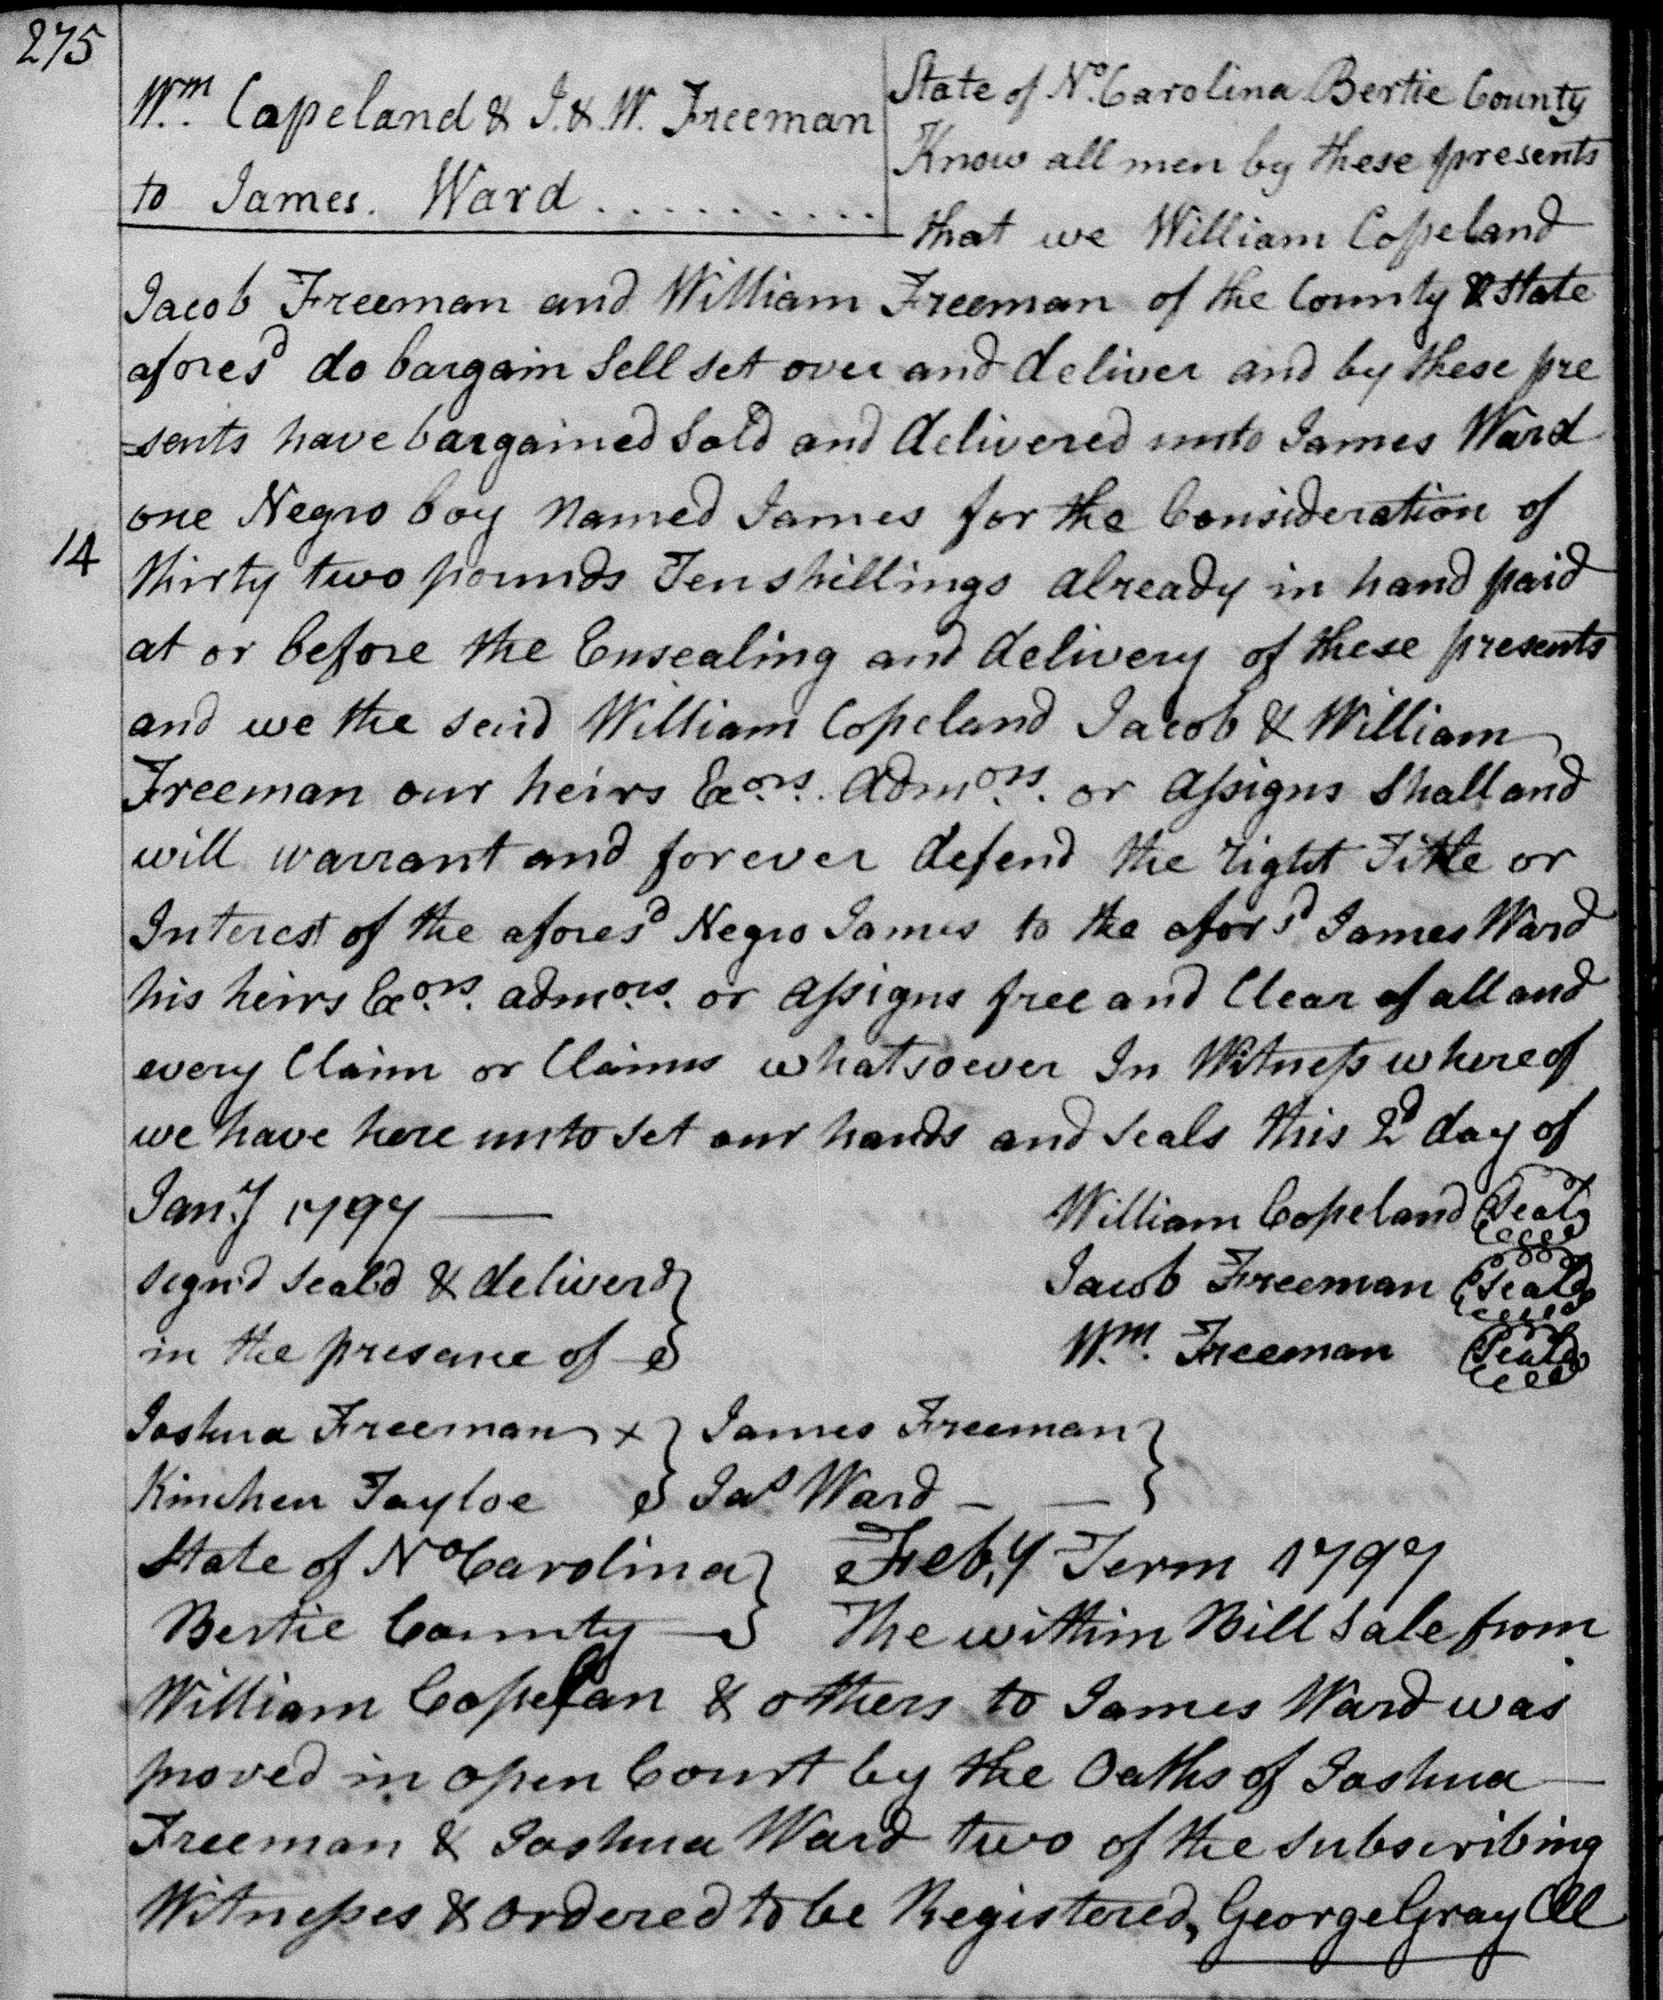 275
Wm. Copeland & J. & W. Freeman
to James. Ward . . . . . . . . . .
State of No. Carolina Bertie County
Know all men by these presents
that we William Copeland
Jacob Freeman and William Freeman of the County & State
afores'd do bargain Sell set over and deliver and by these pre
=sents have bargained Sold and delivered unto James Ward
one Negro boy Named James for the Consideration of
14
thirty two pounds Ten shillings already in hand paid
at or before the Ensealing and delivery of these presents
and we the said William Copeland Jacob & William
Freeman our heirs Exors. Admors. or Assigns Shall and
will warrant and forever defend the right Title or
Interest of the afores'd Negro James to the afors'd James Ward
his heirs Exors. admors. or Assigns free and Clear of all and
every Claim or Claims whatsoever In Witness whereof
we have here unto set our hands and seals this 2d day of
Jany 1797 —
William Copeland Seal
signd seald & deliverd
Jacob Freeman Seal
in the presence of
Wm. Freeman Seal
Joshua Freeman x James Freeman
Kinchen Tayloe Jas Ward — —
State of No Carolina Feby Term 1797
Bertie County — The within Bill Sale from
William Copelan & others to James Ward was
proved in open Court by the Oaths of Joshua —
Freeman & Joshua Ward two of the subscribing
Witnesses & ordered to be Registered, George Gray Cll